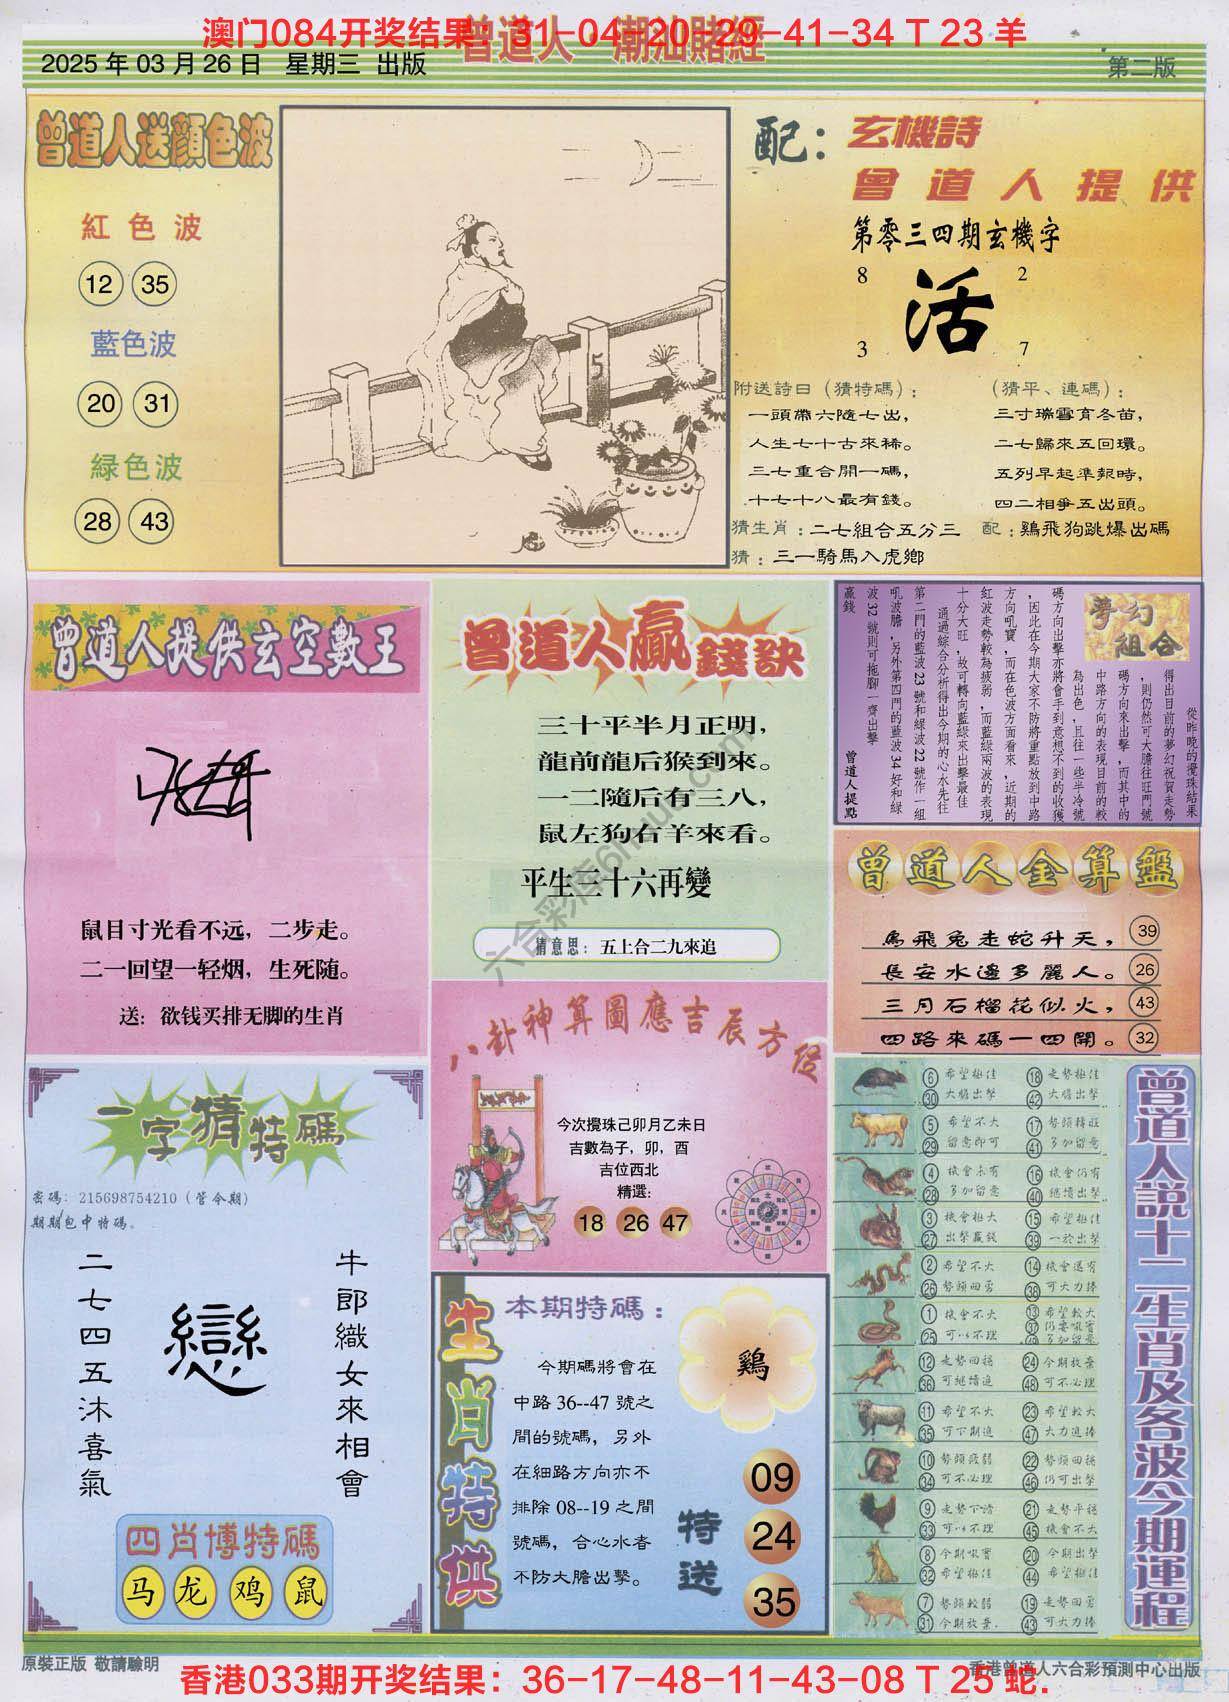 澳门084开奖结果：31-04-20-29-41-34 T 23 羊
曾道人 潮汕賭經
2025 年 03 月 26 日 星期三 出版
第二版
曾道人送顏色波
紅色波
12 35
藍色波
20 31
緑色波
28 43
5
配：玄機詩
曾道人提供
第零三四期玄機字
8 2
活
3 7
附送詩曰（猜特碼）：
一頭帶六隨七出，
人生七十古來稀。
三七重合開一碼，
十七十八最有錢。
（猜平、連碼）：
三寸瑞雪育冬苗，
二七歸來五回環。
五列早起準報時，
四二相爭五出頭。
猜生肖：二七組合五分三
配：鷄飛狗跳爆出碼
猜：三一騎馬入虎鄉
曾道人提供玄空數王
鼠目寸光看不远，二步走。
二一回望一轻烟，生死随。
送：欲钱买排无脚的生肖
曾道人贏錢訣
三十平半月正明，
龍前龍后猴到來。
一二隨后有三八，
鼠左狗右羊來看。
平生三十六再變
猜意思：五上合二九來追
夢幻組合
從昨晚的攪珠結果
得出目前的夢幻祝賀走勢
，則仍然可大膽往旺門號
碼方向來出擊，而其中的
中路方向的表現目前的較
為出色，且往一些半冷號
碼方向出擊亦將會手到意想不到的收獲
，因此在今期大家不防將重點放到中路
方向吼寶，而在色波方面看來，近期的
紅波走勢較為疲弱，而藍綠兩波的表現
十分大旺，故可轉向藍綠來出擊最佳
通過綜合分析得出今期的心水先往
第二門的藍波23號和綠波22號作一組
吼波膽，另外第四門的藍波34好和綠
波32號則可拖腳一齊出擊
贏錢
曾道人提點
曾道人金算盤
馬飛兔走蛇升天， 39
長安水邊多麗人。 26
三月石榴花似火， 43
四路來碼一四開。 32
八卦神算圖應吉辰方位
今次攪珠己卯月乙未日
吉數為子，卯，酉
吉位西北
精選：
18 26 47
一字猜特碼
密碼：215698754210（管今期）
期期包中特碼。
二七四五沐喜氣
戀
牛郎織女來相會
四肖博特碼
马 龙 鸡 鼠
生肖特供
本期特碼：
鷄
今期碼將會在
中路 36--47 號之
間的號碼，另外
在細路方向亦不
排除 08--19 之間
號碼，合心水者
不防大膽出擊。
特送
09
24
35
曾道人説十二生肖及各波今期運程
6 希望極佳 18 走勢極佳
30 大膽出擊 42 大膽出擊
5 希望不大 17 勢頭轉旺
29 留意即可 41 多加留意
4 機會未有 16 機會仍有
28 多加留意 40 繼續出擊
3 機會極大 15 希望極佳
27 出擊贏錢 39 一於出擊
2 希望不大 14 機會還有
26 勢頭回勇 38 可大力捧
1 機會不大 13 希望較大
25 可以不理 37 仍要吼實
49 多加留意
12 走勢回穩 24 今期放棄
36 可繼續追 48 可不必理
11 希望不大 23 希望較大
35 可下期追 47 大力追捧
10 勢頭疲弱 22 勢頭回穩
34 可不必理 46 仍可出擊
9 走勢下滑 21 走勢平穩
33 可以不理 45 機會不大
8 今期吼實 20 今期出擊
32 希望極佳 44 希望極佳
7 勢頭較弱 19 走勢回勇
31 今期放棄. 43 可大力捧
六合彩库6huo.com
原裝正版 敬請驗明
香港曾道人六合彩預測中心出版
香港033期开奖结果：36-17-48-11-43-08 T 25 蛇.